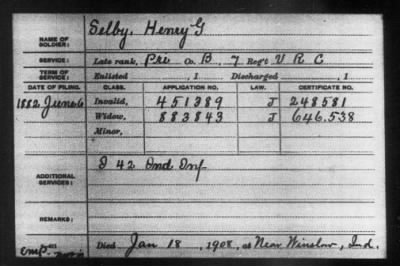 NAME OF SOLDIER: Selby, Henry G
SERVICE: Late rank, Pri Co. B, 7 Reg't V R C
TERM OF SERVICE: Enlisted , 1 Discharged , 1
DATE OF FILING. CLASS. APPLICATION NO. LAW. CERTIFICATE NO.
1882 June 6 Invalid, 451389 J 248581
Widow, 883843 J 646.538
Minor,
ADDITIONAL SERVICES: D 42 Ind Inf
REMARKS:
Died Jan 18, 1908, at Near Winslow, Ind.